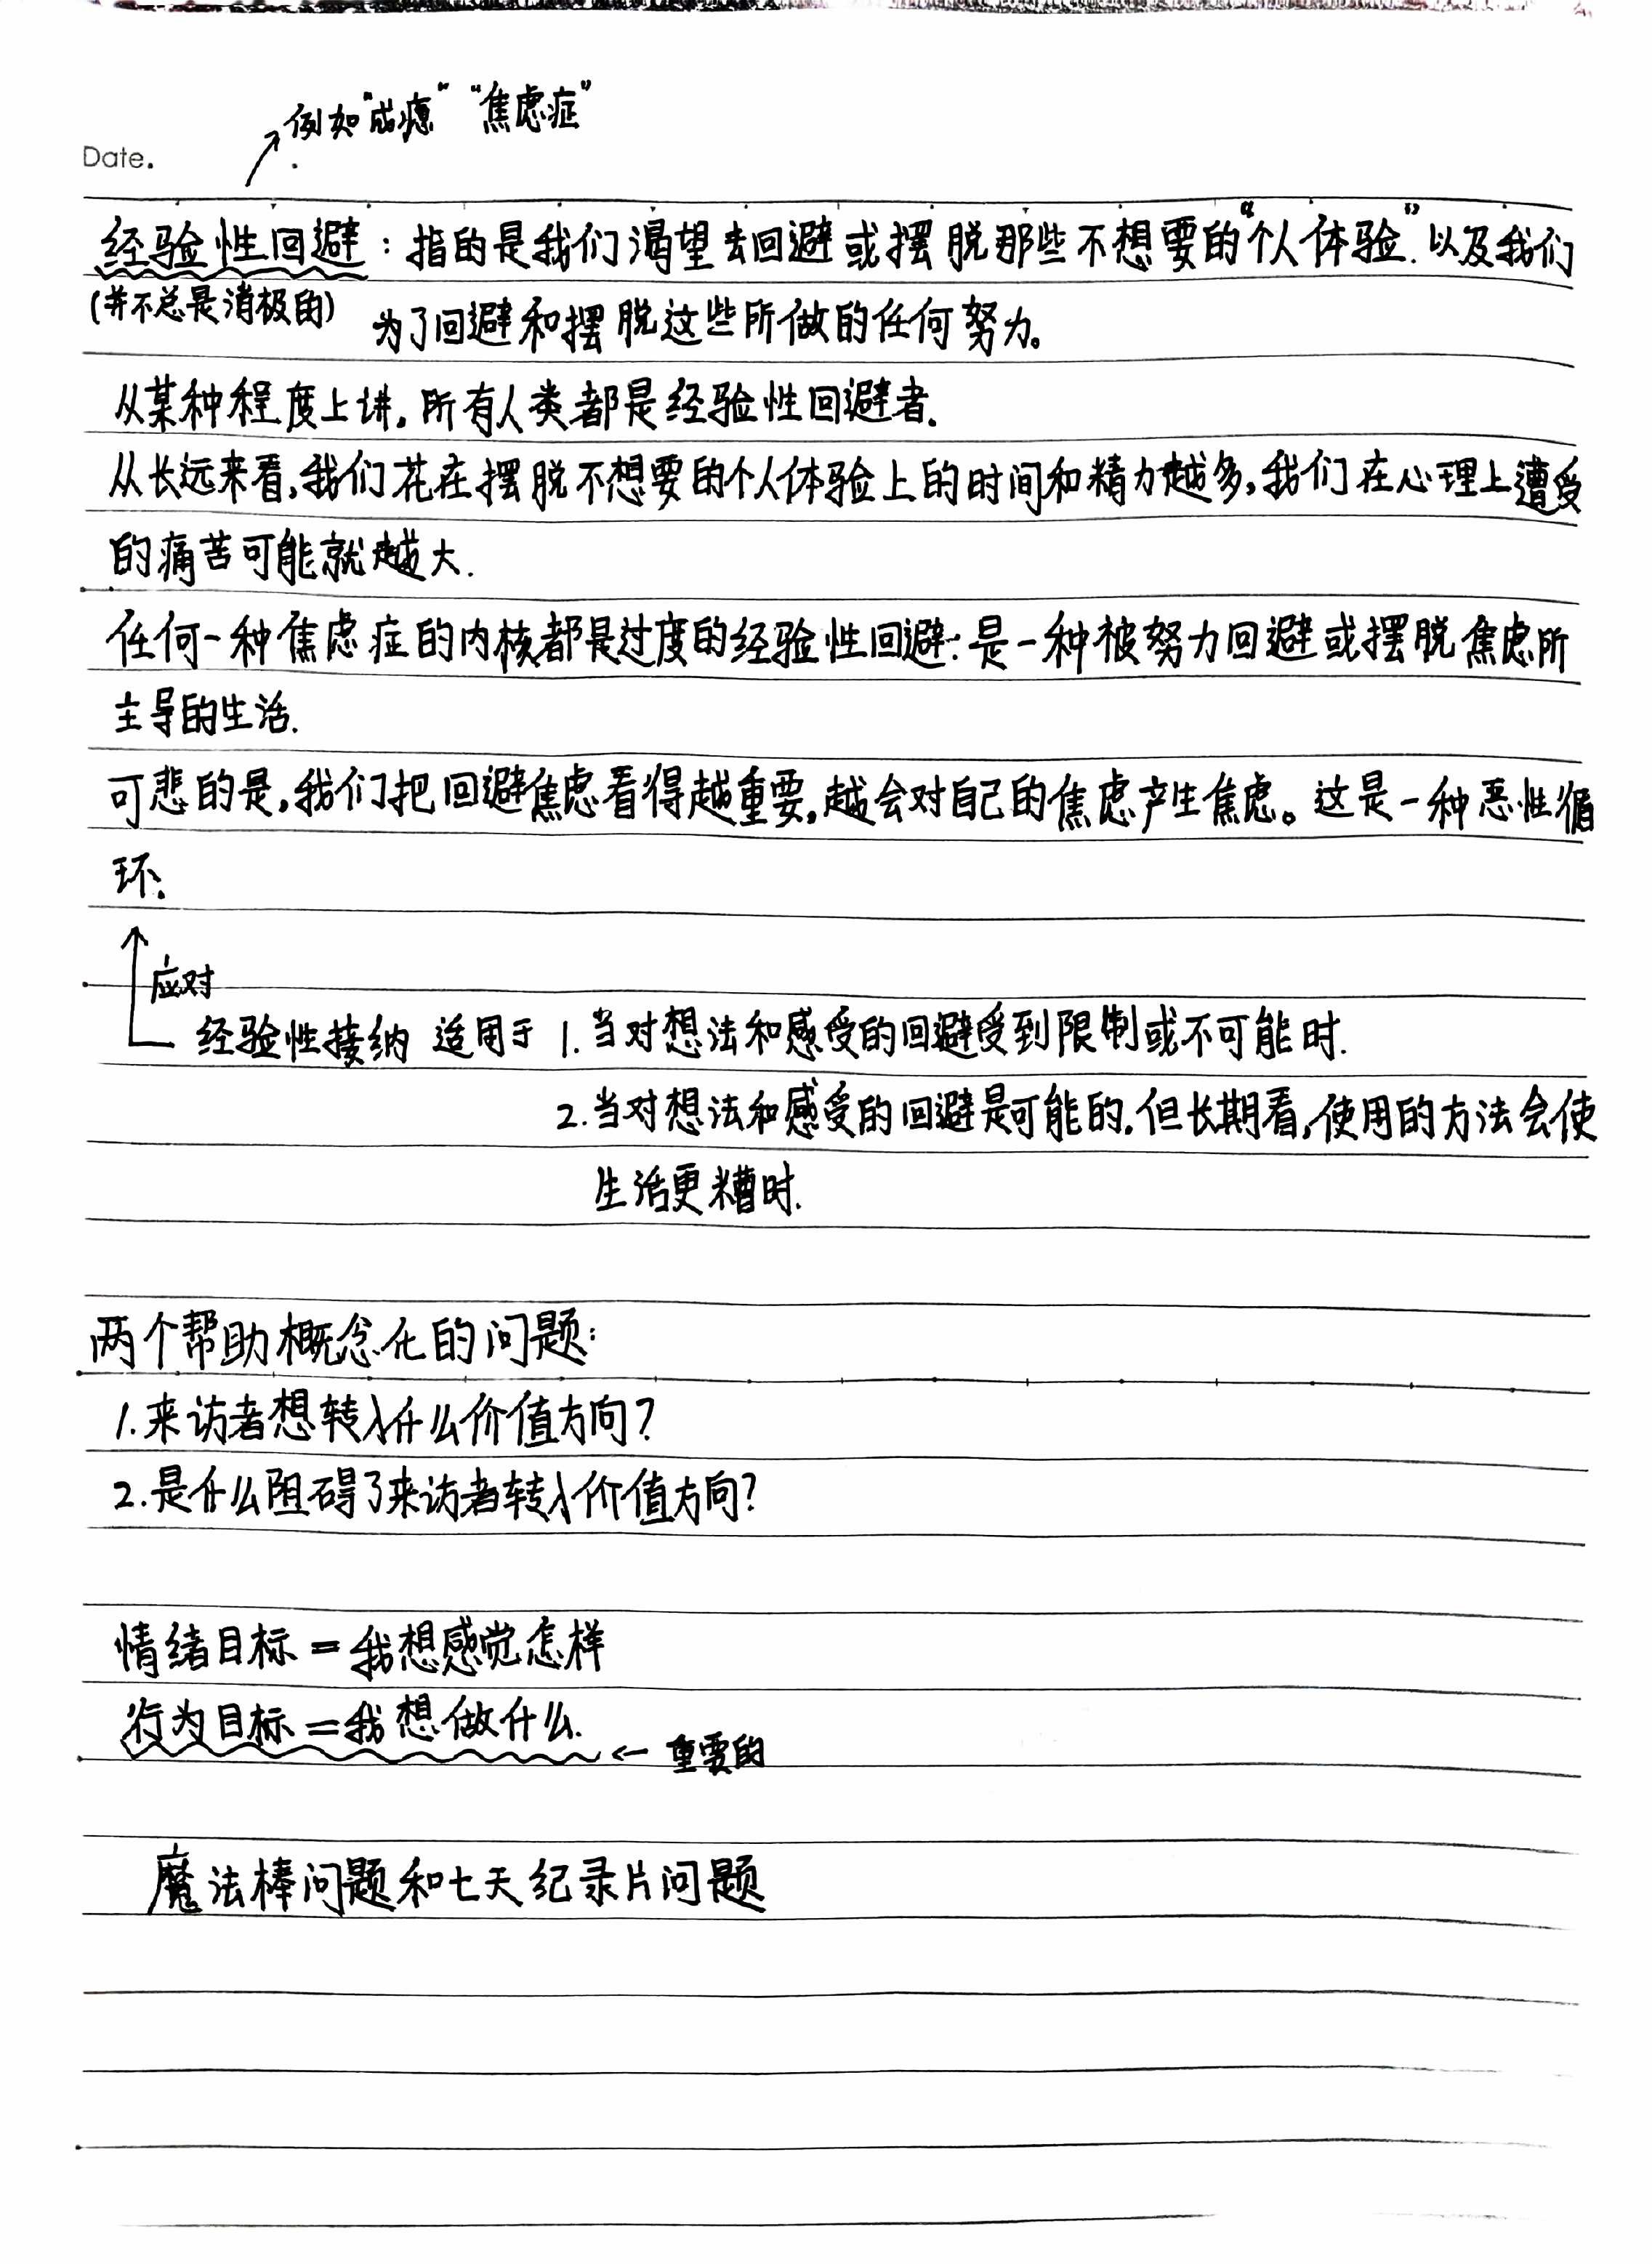 例如"成瘾" "焦虑症"
Date.
经验性回避：指的是我们渴望去回避或摆脱那些不想要的"个人体验".以及我们
(并不总是消极的) 为了回避和摆脱这些所做的任何努力。
从某种程度上讲,所有人类都是经验性回避者.
从长远来看,我们花在摆脱不想要的个人体验上的时间和精力越多,我们在心理上遭受
的痛苦可能就越大.
任何一种焦虑症的内核都是过度的经验性回避:是一种被努力回避或摆脱焦虑所
主导的生活.
可悲的是,我们把回避焦虑看得越重要,越会对自己的焦虑产生焦虑。这是一种恶性循
环.
应对
经验性接纳 适用于 1.当对想法和感受的回避受到限制或不可能时.
2.当对想法和感受的回避是可能的,但长期看,使用的方法会使
生活更糟时.
两个帮助概念化的问题:
1.来访者想转入什么价值方向?
2.是什么阻碍了来访者转入价值方向?
情绪目标=我想感觉怎样
行为目标=我想做什么.
← 重要的
魔法棒问题和七天纪录片问题